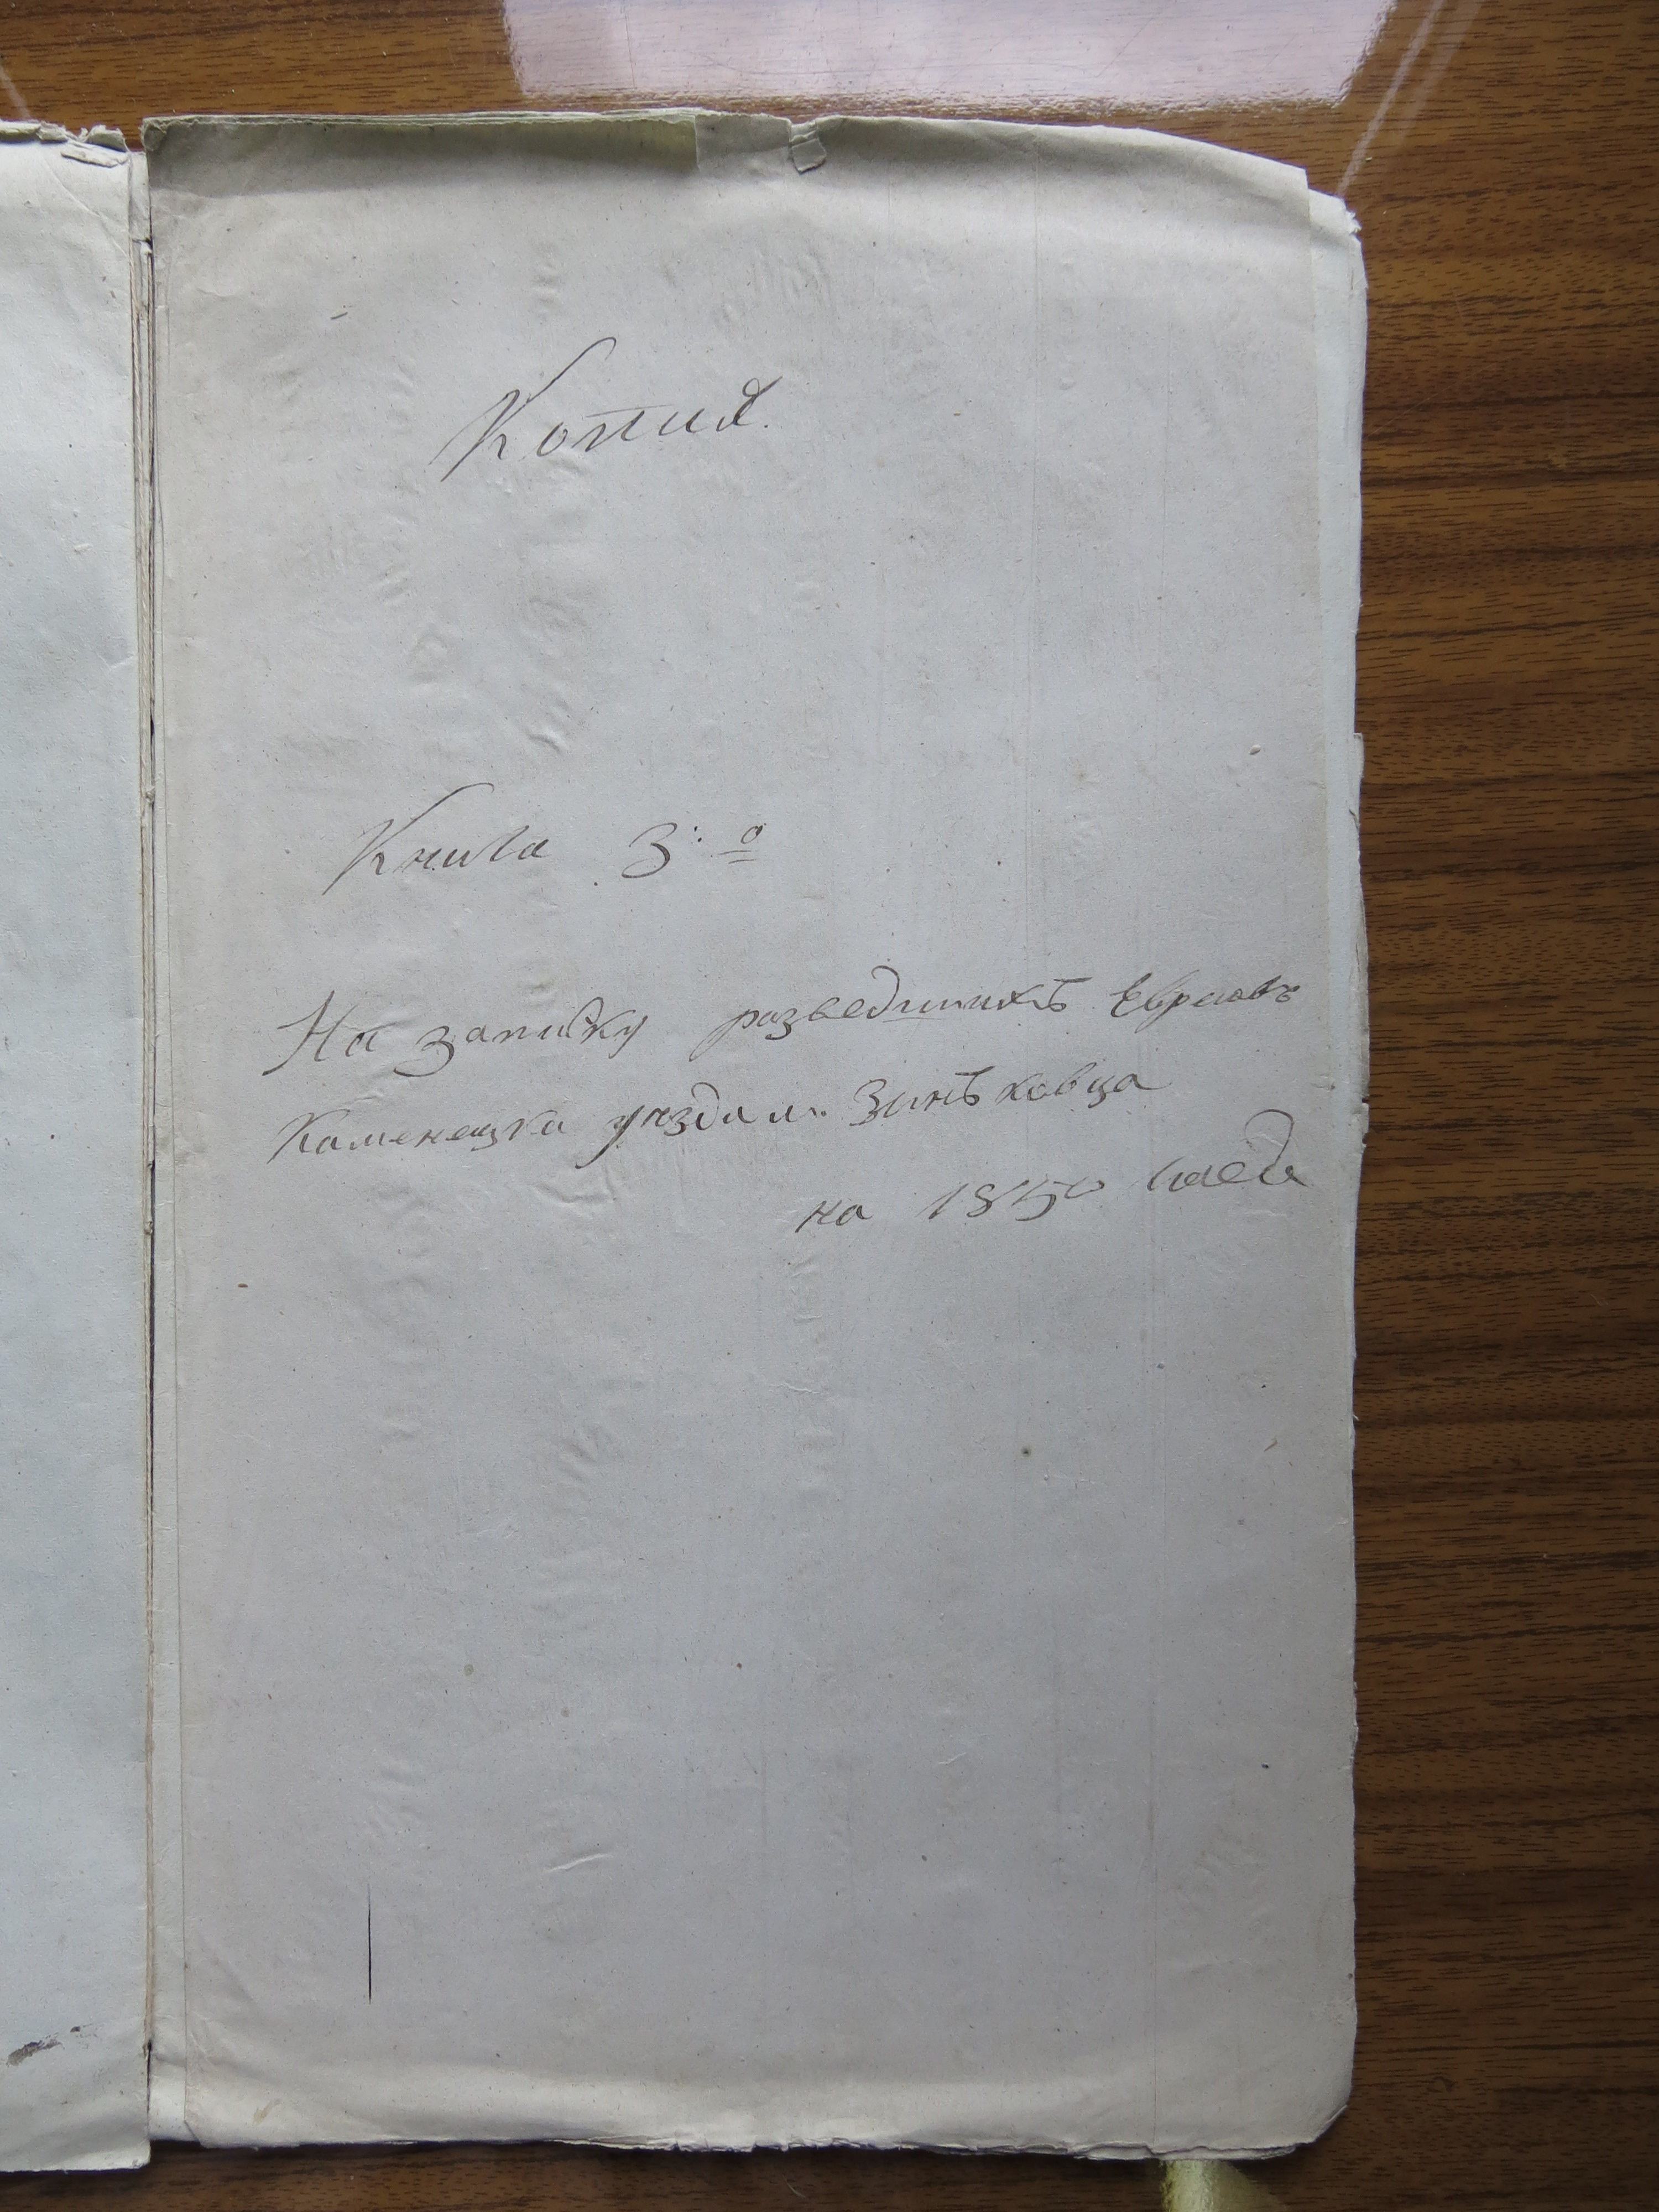 Копия.
Книга 3:а
На записку разведшихъ Евреовъ
Каменецка уѣзда м. Зинъковца
на 1850 годъ